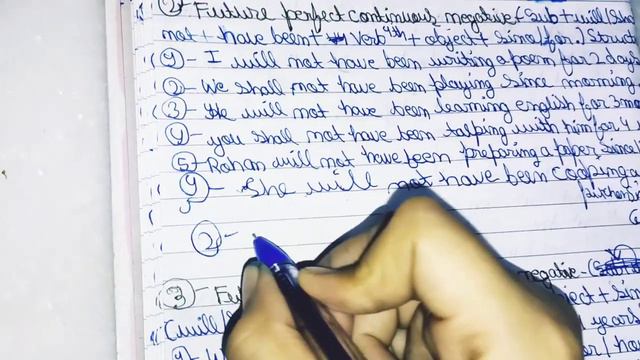 ② - Future perfect continuous negative - (Sub + will/
not + have been + Verb 4th + object + since/for.) Struct
① - I will not have been writing a poem for 2 days
② - We shall not have been playing since morning
③ - He will not have been learning english for 3 mo
④ - you shall not have been talping with him for 4
⑤ - Rohan will not have been preparing a paper since
She will not have been cooping
② -
③ - negative -
ject + sin
(will/ years